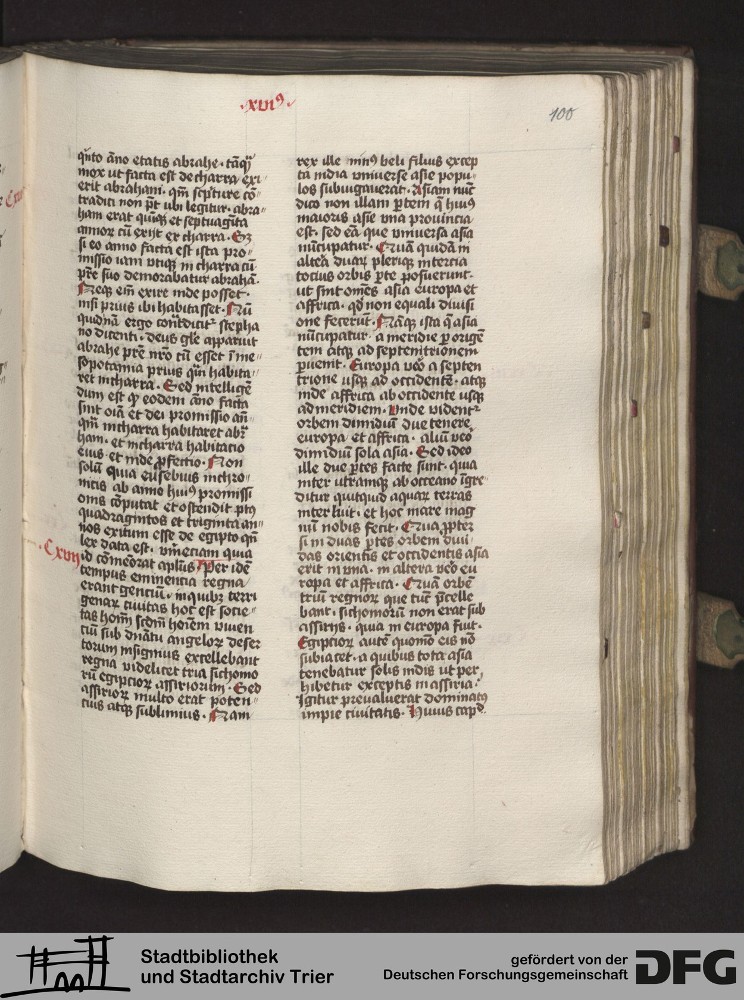 ·xvi⁹·
100
qn̄to āno etatis abrahe · tāq̄
mox ut facta est de charra exi
erit abraham · qm̄ scpture cō
tradici non pt̄ ubi legitur · abra
ham erat quīqꝫ et septuagīta
annoꝝ cū exiit ex charra · Sꝫ
si eo anno facta est ista pro
missio iam utiqꝫ in charra cū
pr̄e suo demorabatur abrahā ·
Neqꝫ em̄ exire inde posset ·
nisi prius ibi habitasset · Nū
quidnā ergo contᵃdicit̄ stepha
no dicenti · deus gl̄e apparuit
abrahe pr̄e nr̄o cū esset ī me
sopotamia prius qᵃ̄ habita
ret in charra · Sed intelligē
dum est qꝫ eodem āno facta
sint oīa et dei promissio an̄
qᵃ̄m in charra habitaret abrᵃ
ham · et in charra habitatio
eius et inde ꝓfectio · Non
solū quia eusebius in chro
nicis ab anno huiꝰ promissi
onis cōputat et ostendit p̱ꝰ
quadragintos et triginta an
nos exitum esse de egipto qn̄
lex data est · vm̄eciam quia
Cxvij
id cōmēorat apl̄us Per idē
tempus eminencia regna
erant gencium · in quibꝫ terri
genaꝝ ciuitas hoc est socie
tas hoīm scdm̄ hoīem viuen
ciū sub dn̄atu angeloꝝ deser
torum insignius excellebant
regna videlicet tria sichomo
rū egipcioꝝ assiriorum · Sed
assirioꝝ multo erat poten
cius atqꝫ sublimius · Nam
rex ille ninꝰ beli filius excep
ta india vniuerse asie popu
los subiugauerat · Asiam nūc
dico non illam p̱tem q̄ huiꝰ
maioris asie vna prouincia
est · sed eā que vniuersa asia
nūcupatur · Quam quidā in
alteā duaꝝ pleriqꝫ in tercia
tocius orbis p̱te posuerunt ·
ut sint om̄es asia europa et
affrica · qd̄ non equali diuisi
one fecerūt · Nāqꝫ ista q̄ asia
nūcupatur · a meridie p̱ origē
tem atqꝫ ad septenitrionem
p̱uenit · Europa vēo a septen
trione usqꝫ ad occidentē · atqꝫ
inde affrica ab occidente usqꝫ
ad meridiem · Vnde videntᵘʳ
orbem dimidiū due tenere
europa et affrica · aliū vēo
dimidiū sola asia · Sed ideo
ille due p̱tes facte sunt · quia
inter utramqꝫ ab oceano īgre
ditur quitquid aquaꝝ terras
inter luit · et hoc mare mag
nū nobis fecit · Quapropter
si in duas p̱tes orbem diui
das orientis et occidentis asia
erit in vna · in altera vēo eu
ropa et affrica · Quā orbē
triū regnoꝝ que tūc p̱celle
bant · sichomorū non erat sub
assiriis · quia in europa fuit ·
Egipcioꝝ autē quomō eis nō
subiacet · a quibus tota asia
tenebatur solis indis ut per
hibetur exceptis in assiria
Igitur preualuerat dominatꝰ
impie ciuitatis · Huius cap̱ᵈ
Stadtbibliothek
und Stadtarchiv Trier
gefördert von der
Deutschen Forschungsgemeinschaft
DFG